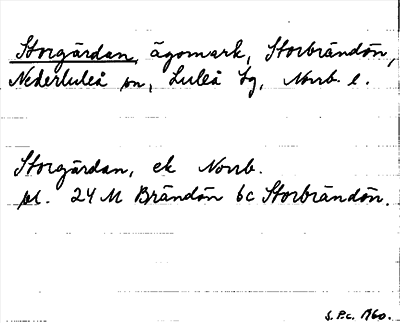 Storgärdan, ägomark, Storbrändön,
Nederluleå sn, Luleå tg, Norrb. l.
Storgärdan, ek Norrb.
pl. 24 M Brändön 6c Storbrändön.
S.P.c. 1760.